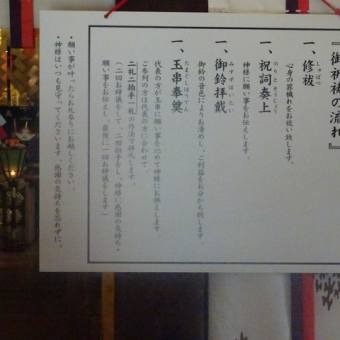 『御祈祓の流れ』
一、修祓
しゅばつ
心身の罪穢れをお祓い致します。
一、祝詞奏上
のりとそうじょう
神様に願い事をお伝えします。
一、御鈴拝戴
みすずはいたい
御鈴の音色によりお清めし、ご利益をお分かち致します。
一、玉串奉奠
たまぐしほうてん
代表の方が玉串に願い事をこめて神様にお供えします
ご参列の方は代表の方に合わせて、
二礼二拍手一礼の作法で拝礼します。
(二回お辞儀をして、二回拍手をし、神様に感謝の気持ち・
願い事をお伝えし、最後に一回お辞儀をします)
・願い事が叶ったらお礼参りにお越しください。
・神様はいつも見守ってくださいます。感謝の気持ちを忘れずに。